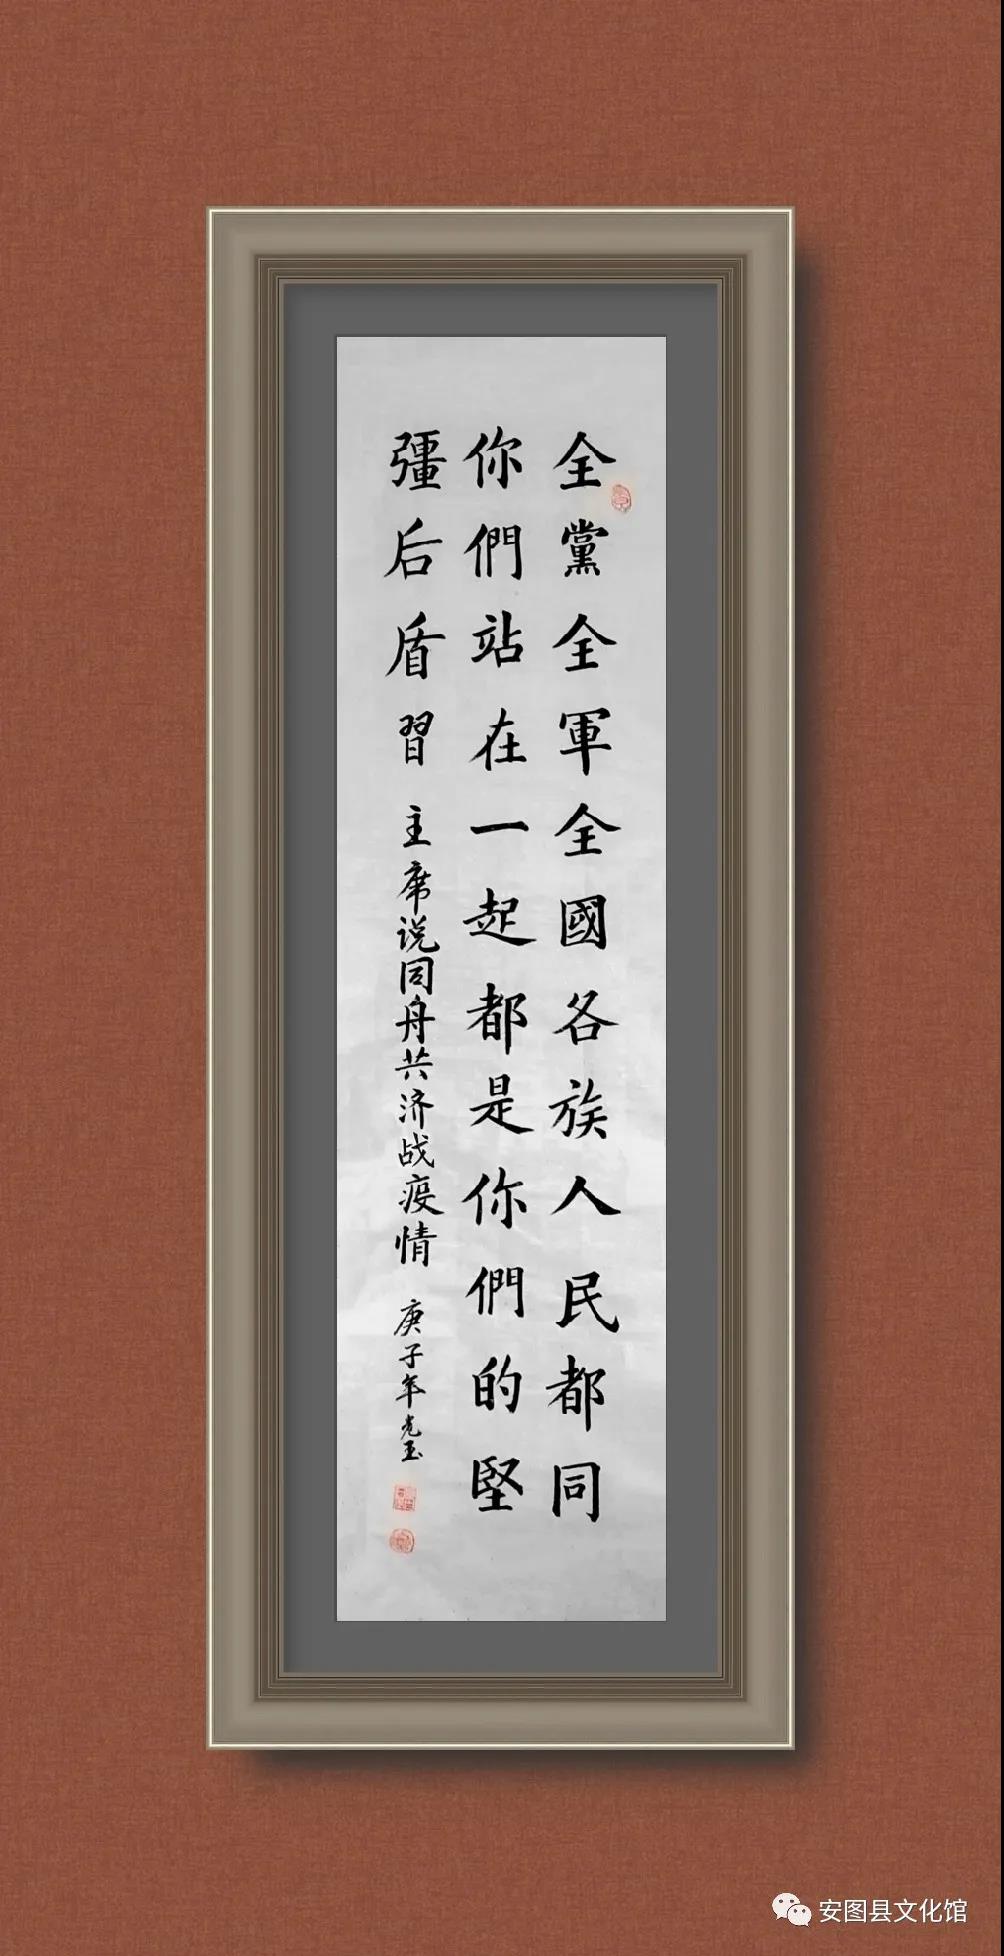 全黨全軍全國各族人民都同
你們站在一起都是你們的堅
彊后盾習主席说同舟共济战疫情
庚子年光玉
安图县文化馆